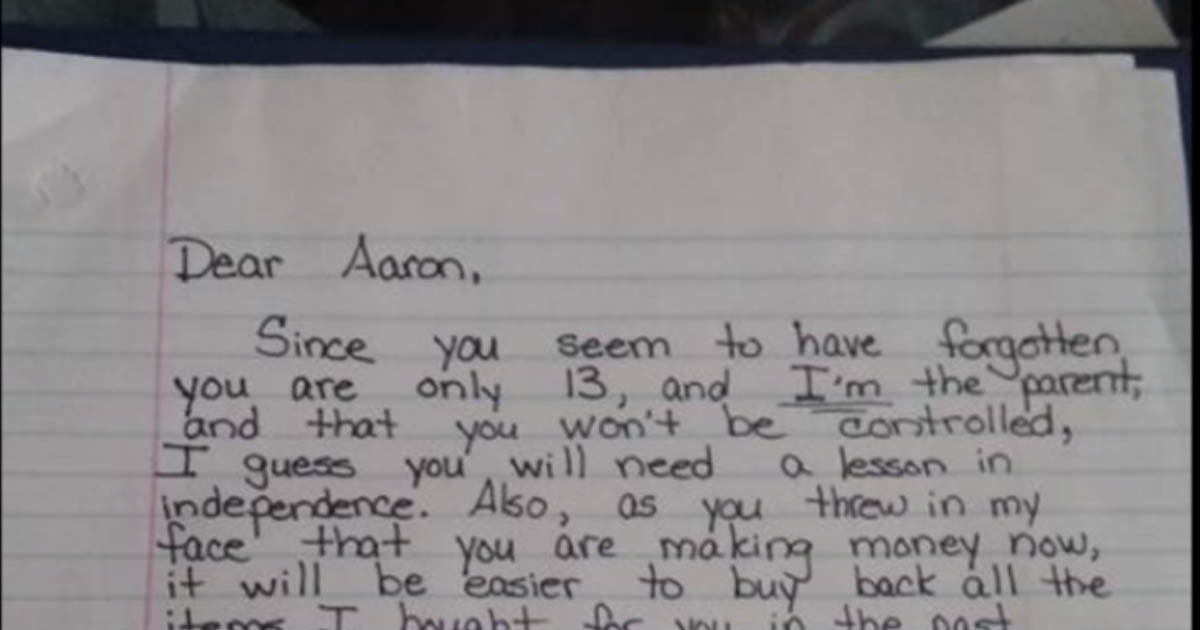 Dear Aaron,
Since you seem to have forgotten
you are only 13, and I'm the parent,
and that you won't be controlled,
I guess you will need a lesson in
independence. Also, as you threw in my
face that you are making money now,
it will be easier to buy back all the
items I bought for you in the past